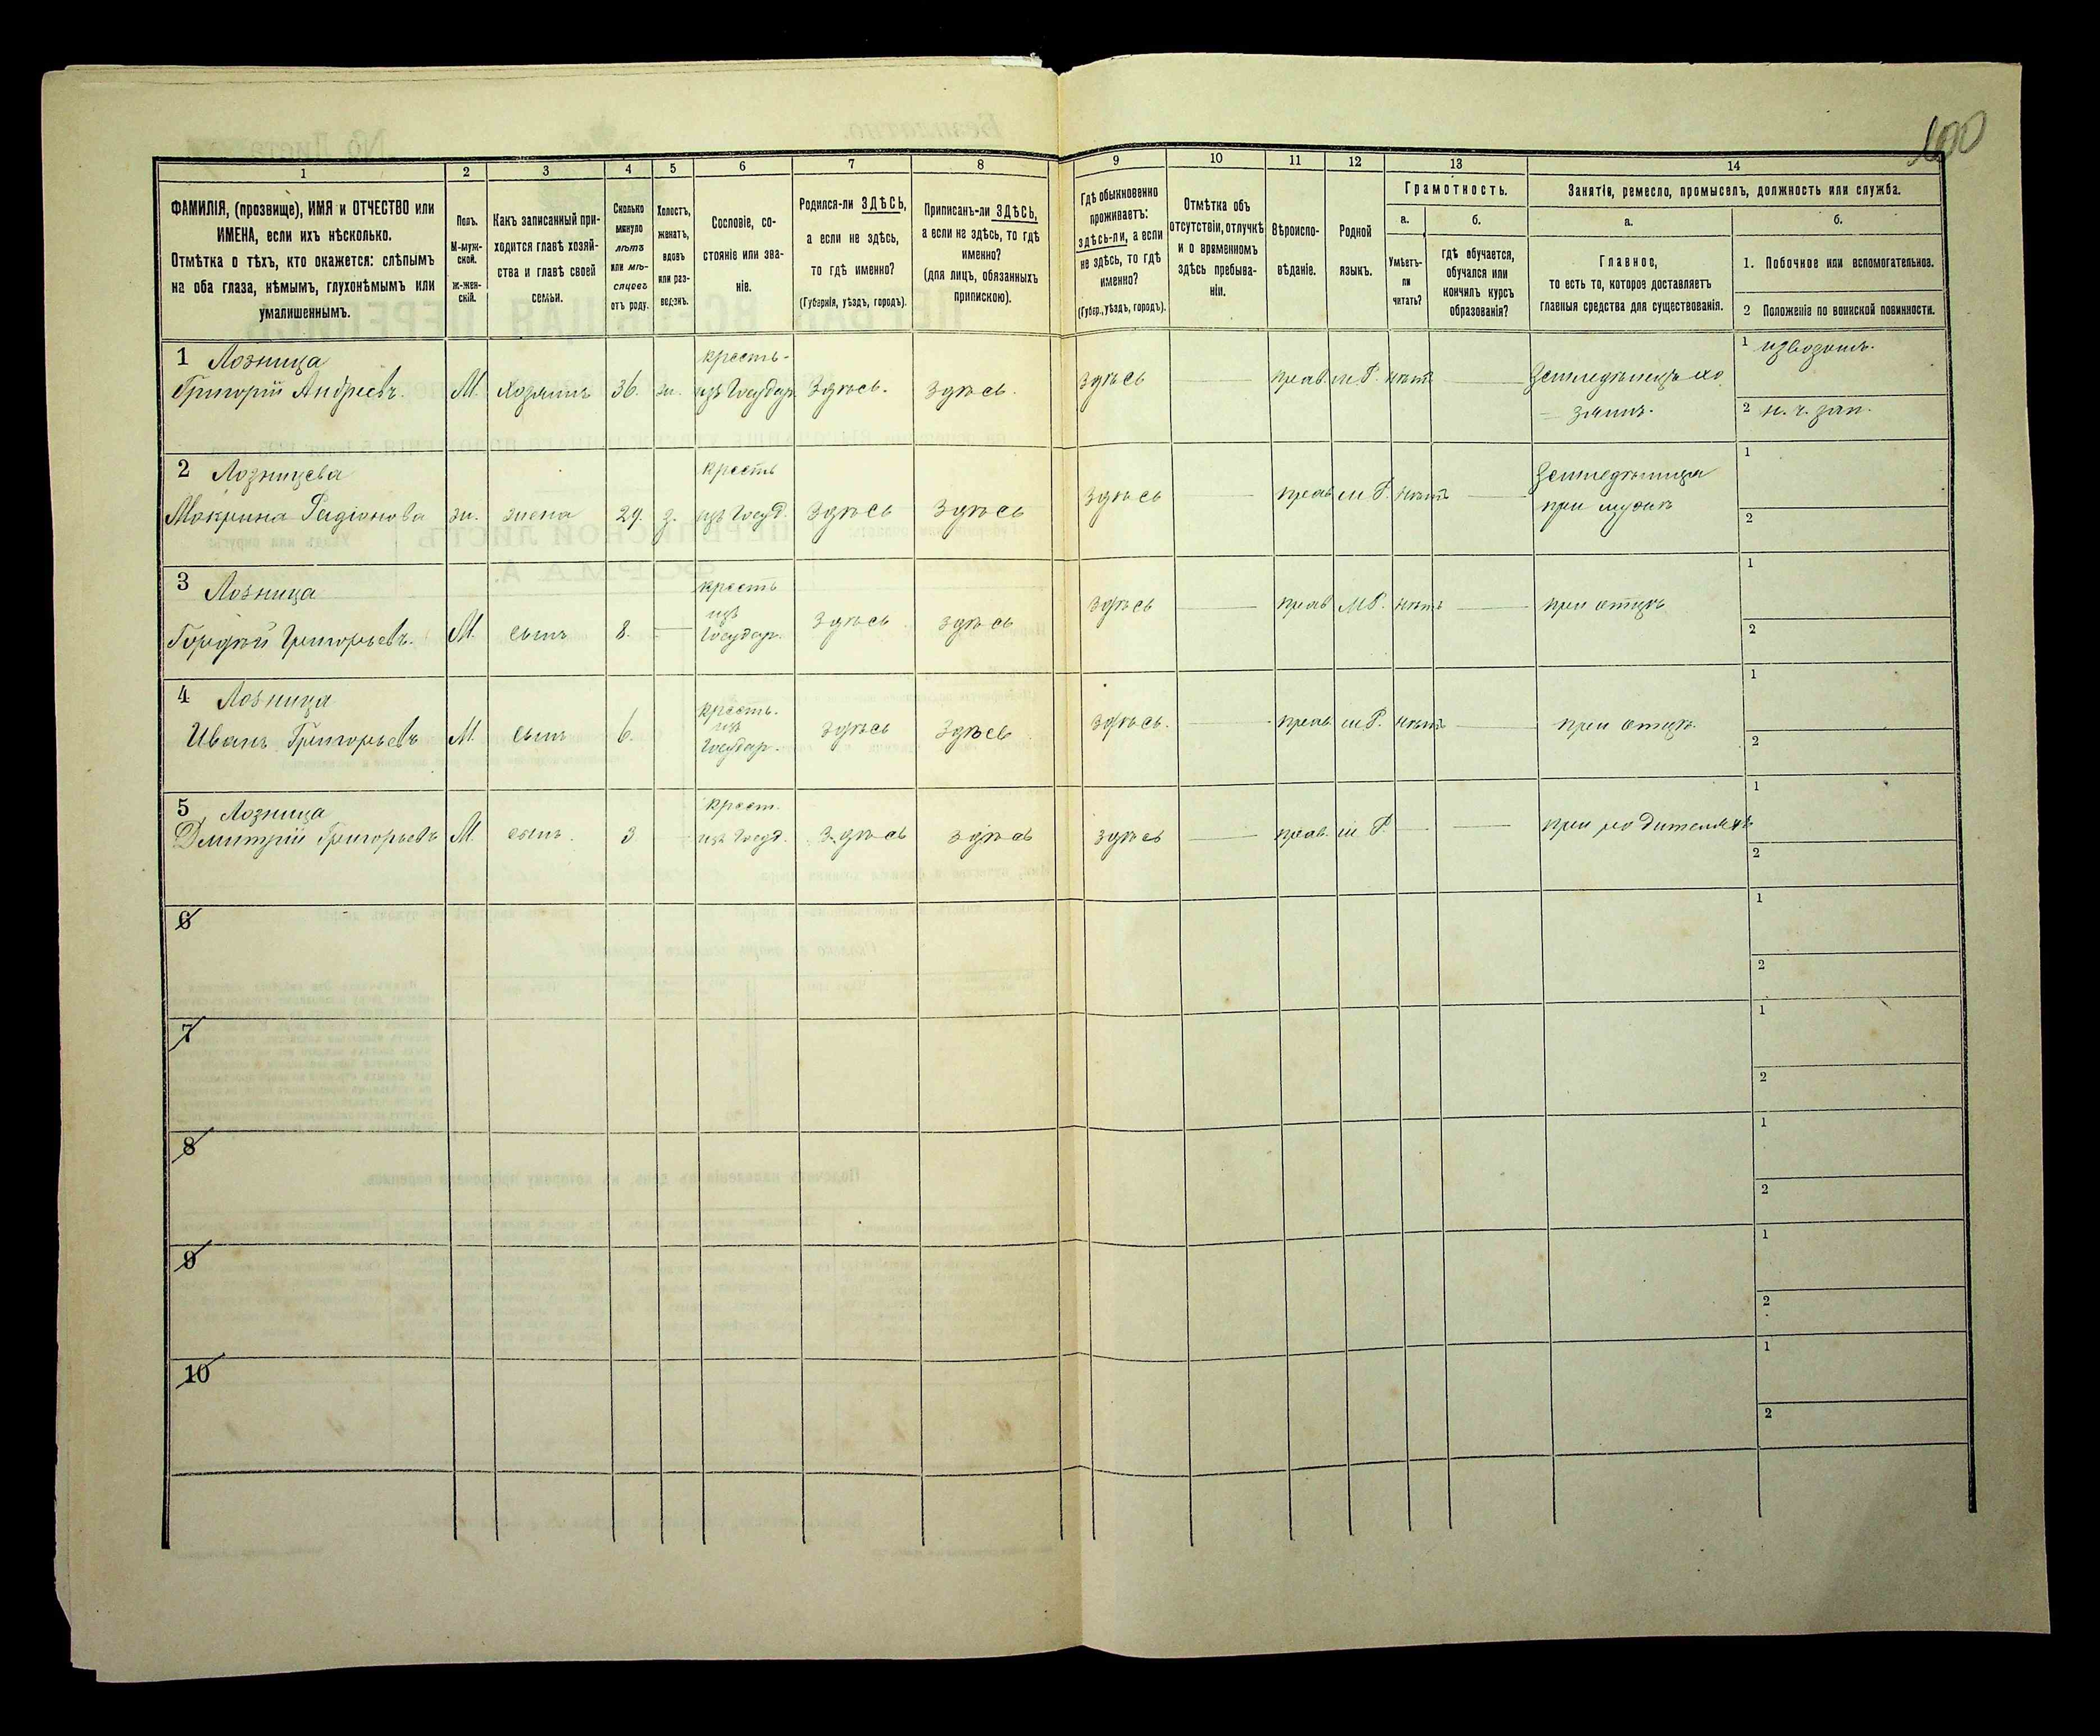 100
1 2 3 4 5 6 7 8 9 10 11 12 13 14
ФАМИЛІЯ, (прозвище), ИМЯ и ОТЧЕСТВО или
ИМЕНА, если ихъ нѣсколько.
Отмѣтка о тѣхъ, кто окажется: слѣпымъ
на оба глаза, нѣмымъ, глухонѣмымъ или
умалишеннымъ.
Полъ.
М-муж-
ской.
Ж-жен-
скій.
Какъ записанный при-
ходится главѣ хозяй-
ства и главѣ своей
семьи.
Сколько
минуло
лѣтъ
или мѣ-
сяцевъ
отъ роду.
Холостъ,
женатъ,
вдовъ
или раз-
веденъ.
Сословіе, со-
стояніе или зва-
ніе.
Родился-ли ЗДѢСЬ,
а если не здѣсь,
то гдѣ именно?
(Губернія, уѣздъ, городъ).
Приписанъ-ли ЗДѢСЬ,
а если не здѣсь, то гдѣ
именно?
(для лицъ, обязанныхъ
припискою).
Гдѣ обыкновенно
проживаетъ:
здѣсь-ли, а если
не здѣсь, то гдѣ
именно?
(Губер., уѣздъ, городъ).
Отмѣтка объ
отсутствіи, отлучкѣ
и о временномъ
здѣсь пребыва-
ніи.
Вѣроиспо-
вѣданіе.
Родной
языкъ.
Грамотность.
а.
Умѣетъ-
ли
читать?
б.
гдѣ обучается,
обучался или
кончилъ курсъ
образованія?
Занятія, ремесло, промыселъ, должность или служба.
а.
Главное,
то есть то, которое доставляетъ
главныя средства для существованія.
б.
1. Побочное или вспомогательное.
2 Положеніе по воинской повинности.
1 Лозница крестъ- 1 извозомъ.
Григорій Андреевъ. М. Хозяинъ 36. ж. изъ Государ. Здѣсь. Здѣсь. Здѣсь прав. м.Р. нѣтъ Земледѣлецъ хо
зяинъ. 2 н. ч. зап.
2 Лозницева крестъ Земледѣлица 1
Макрина Радіонова ж. жена 29. з. изъ Госуд. Здѣсь Здѣсь Здѣсь прав м.Р. нѣтъ при мужѣ 2
3 Лозница крестъ 1
изъ
Гордѣй Григорьевъ. М. сынъ 8. Государ. Здѣсь Здѣсь Здѣсь прав М.Р. нѣтъ при отцѣ 2
4 Лозница крестъ. 1
изъ
Иванъ Григорьевъ М. сынъ 6. Государ. Здѣсь Здѣсь Здѣсь. прав. м.Р. нѣтъ при отцѣ 2
5 Лозница крест. 1
Дмитрій Григорьевъ М. сынъ. 3 изъ Госуд. Здѣсь Здѣсь Здѣсь прав. м.Р. при родителяхъ 2
6 1
2
7 1
2
8 1
2
9 1
2
10 1
2